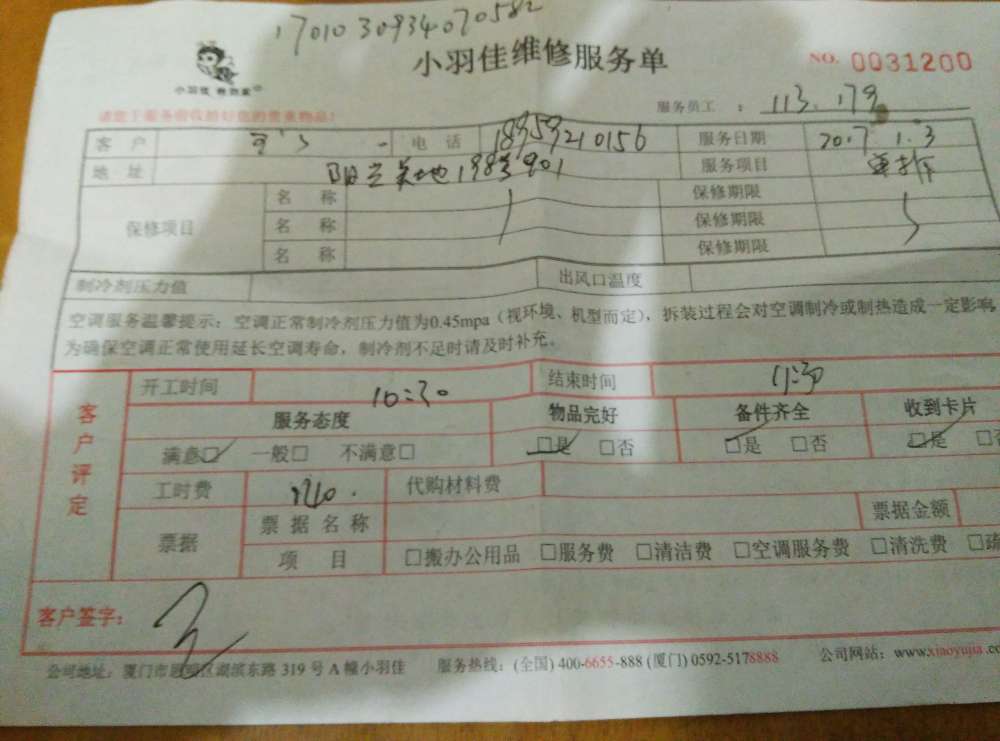 1701030934070582
小羽佳维修服务单
NO. 0031200
小羽佳
服务员工：113.179
请您于服务前收拾好您的贵重物品！
客户 电话 18959210156 服务日期 2017 1.3
地址 服务项目
保修项目 名称 保修期限
名称 保修期限
名称 保修期限
制冷剂压力值 出风口温度
空调服务温馨提示：空调正常制冷剂压力值为0.45mpa（视环境、机型而定），拆装过程会对空调制冷或制热造成一定影响，
为确保空调正常使用延长空调寿命，制冷剂不足时请及时补充。
客户评定
开工时间 10:30 结束时间 11:30
服务态度 物品完好 备件齐全 收到卡片
满意□ 一般□ 不满意□ □是 □否 □是 □否 □是 □否
工时费 代购材料费
票据 票据名称 票据金额
项目 □搬办公用品 □服务费 □清洁费 □空调服务费 □清洗费
客户签字：
公司地址：厦门市思明区湖滨东路 319 号 A 幢小羽佳 服务热线：(全国) 400-6655-888 (厦门) 0592-5178888 公司网站：www.xiaoyujia.co